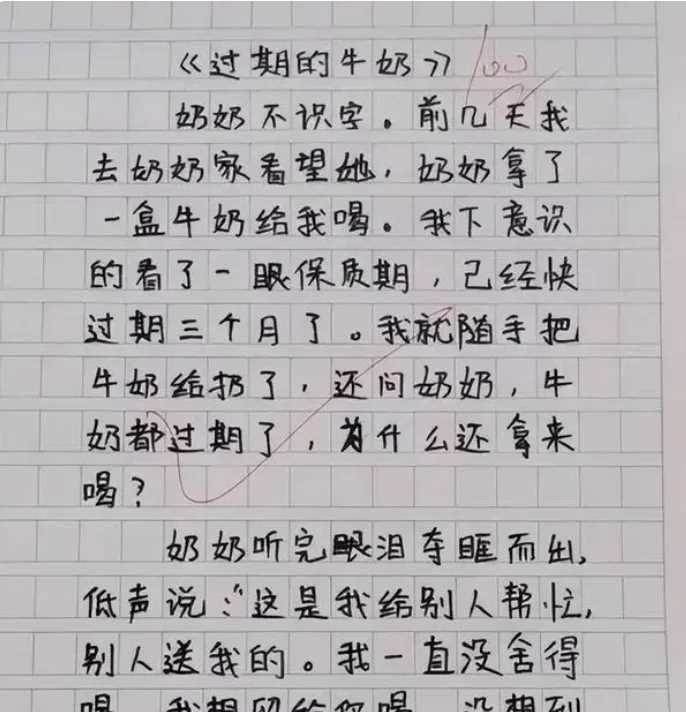 《过期的牛奶》 100
奶奶不识字。前几天我
去奶奶家看望她，奶奶拿了
一盒牛奶给我喝。我下意识
的看了一眼保质期，已经快
过期三个月了。我就随手把
牛奶给扔了，还问奶奶，牛
奶都过期了，为什么还拿来
喝？
奶奶听完眼泪夺眶而出，
低声说：“这是我给别人帮忙，
别人送我的。我一直没舍得
喝，我想留给你喝，没想到